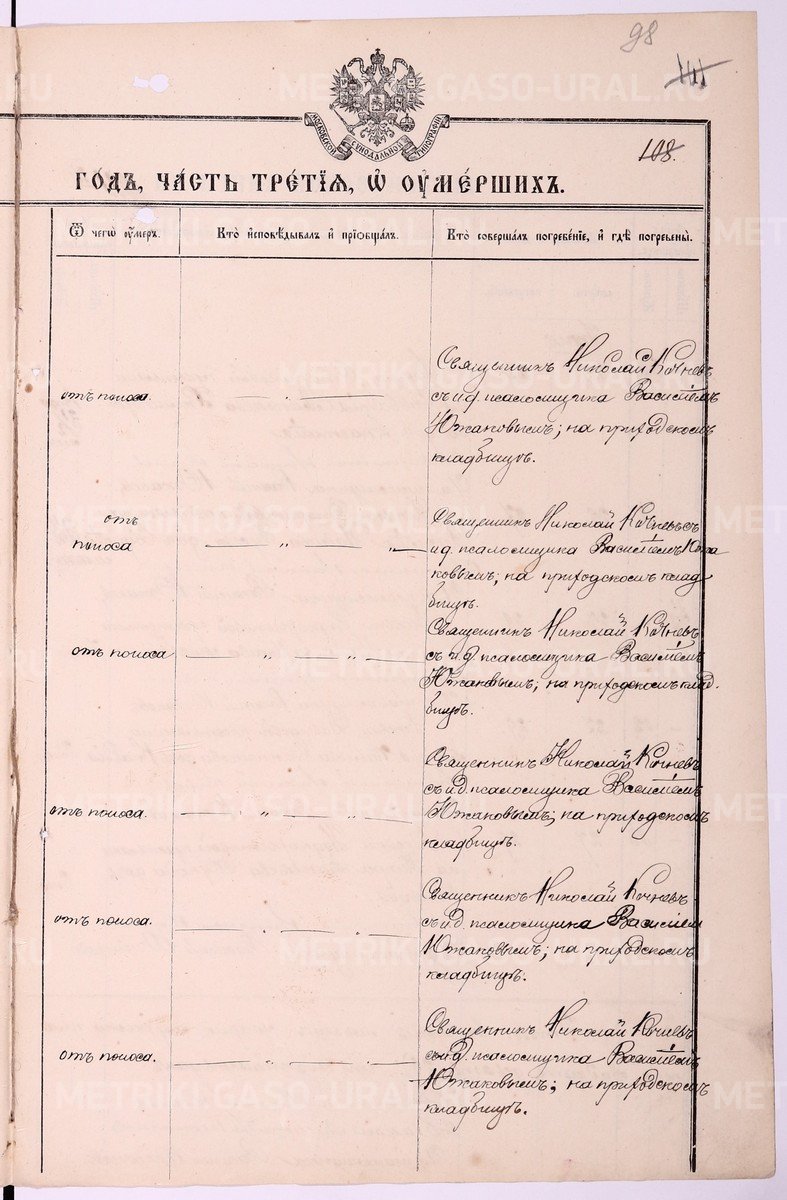 98
108.
МОСКОВСКОЙ СѴНОДАЛЬНОЙ ТИПОГРАФІИ
METRIKI.GASO-URAL.RU
ГОДЪ, ЧАСТЬ ТРЕТІЯ, Ѡ ОУМЕРШИХЪ.
Ѿ чегѡ оумеръ. Кто исповѣдывалъ и пріобщалъ. Кто совершалъ погребеніе, и гдѣ погребены.
Священникъ Николай Кочневъ
отъ поноса. съ и.д. псаломщика Василіемъ
Южаковымъ; на приходскомъ
кладбищѣ.
отъ Священникъ Николай Кочневъ съ
поноса и.д. псаломщика Василіемъ Южа
ковымъ; на приходскомъ клад
бищѣ.
Священникъ Николай Кочневъ
отъ поноса съ и.д. псаломщика Василіемъ
Южаковымъ; на приходскомъ клад.
бищѣ.
Священникъ Николай Кочневъ
съ и.д. псаломщика Василіемъ
отъ поноса. Южаковымъ; на приходскомъ
кладбищѣ.
Священникъ Николай Кочневъ
отъ поноса. съ и.д. псаломщика Василіем
Южаковымъ; на приходскомъ
кладбищѣ.
Священникъ Николай Кочневъ
отъ поноса. съ и.д. псаломщика Василіемъ
Южаковымъ; на приходскомъ
кладбищѣ.